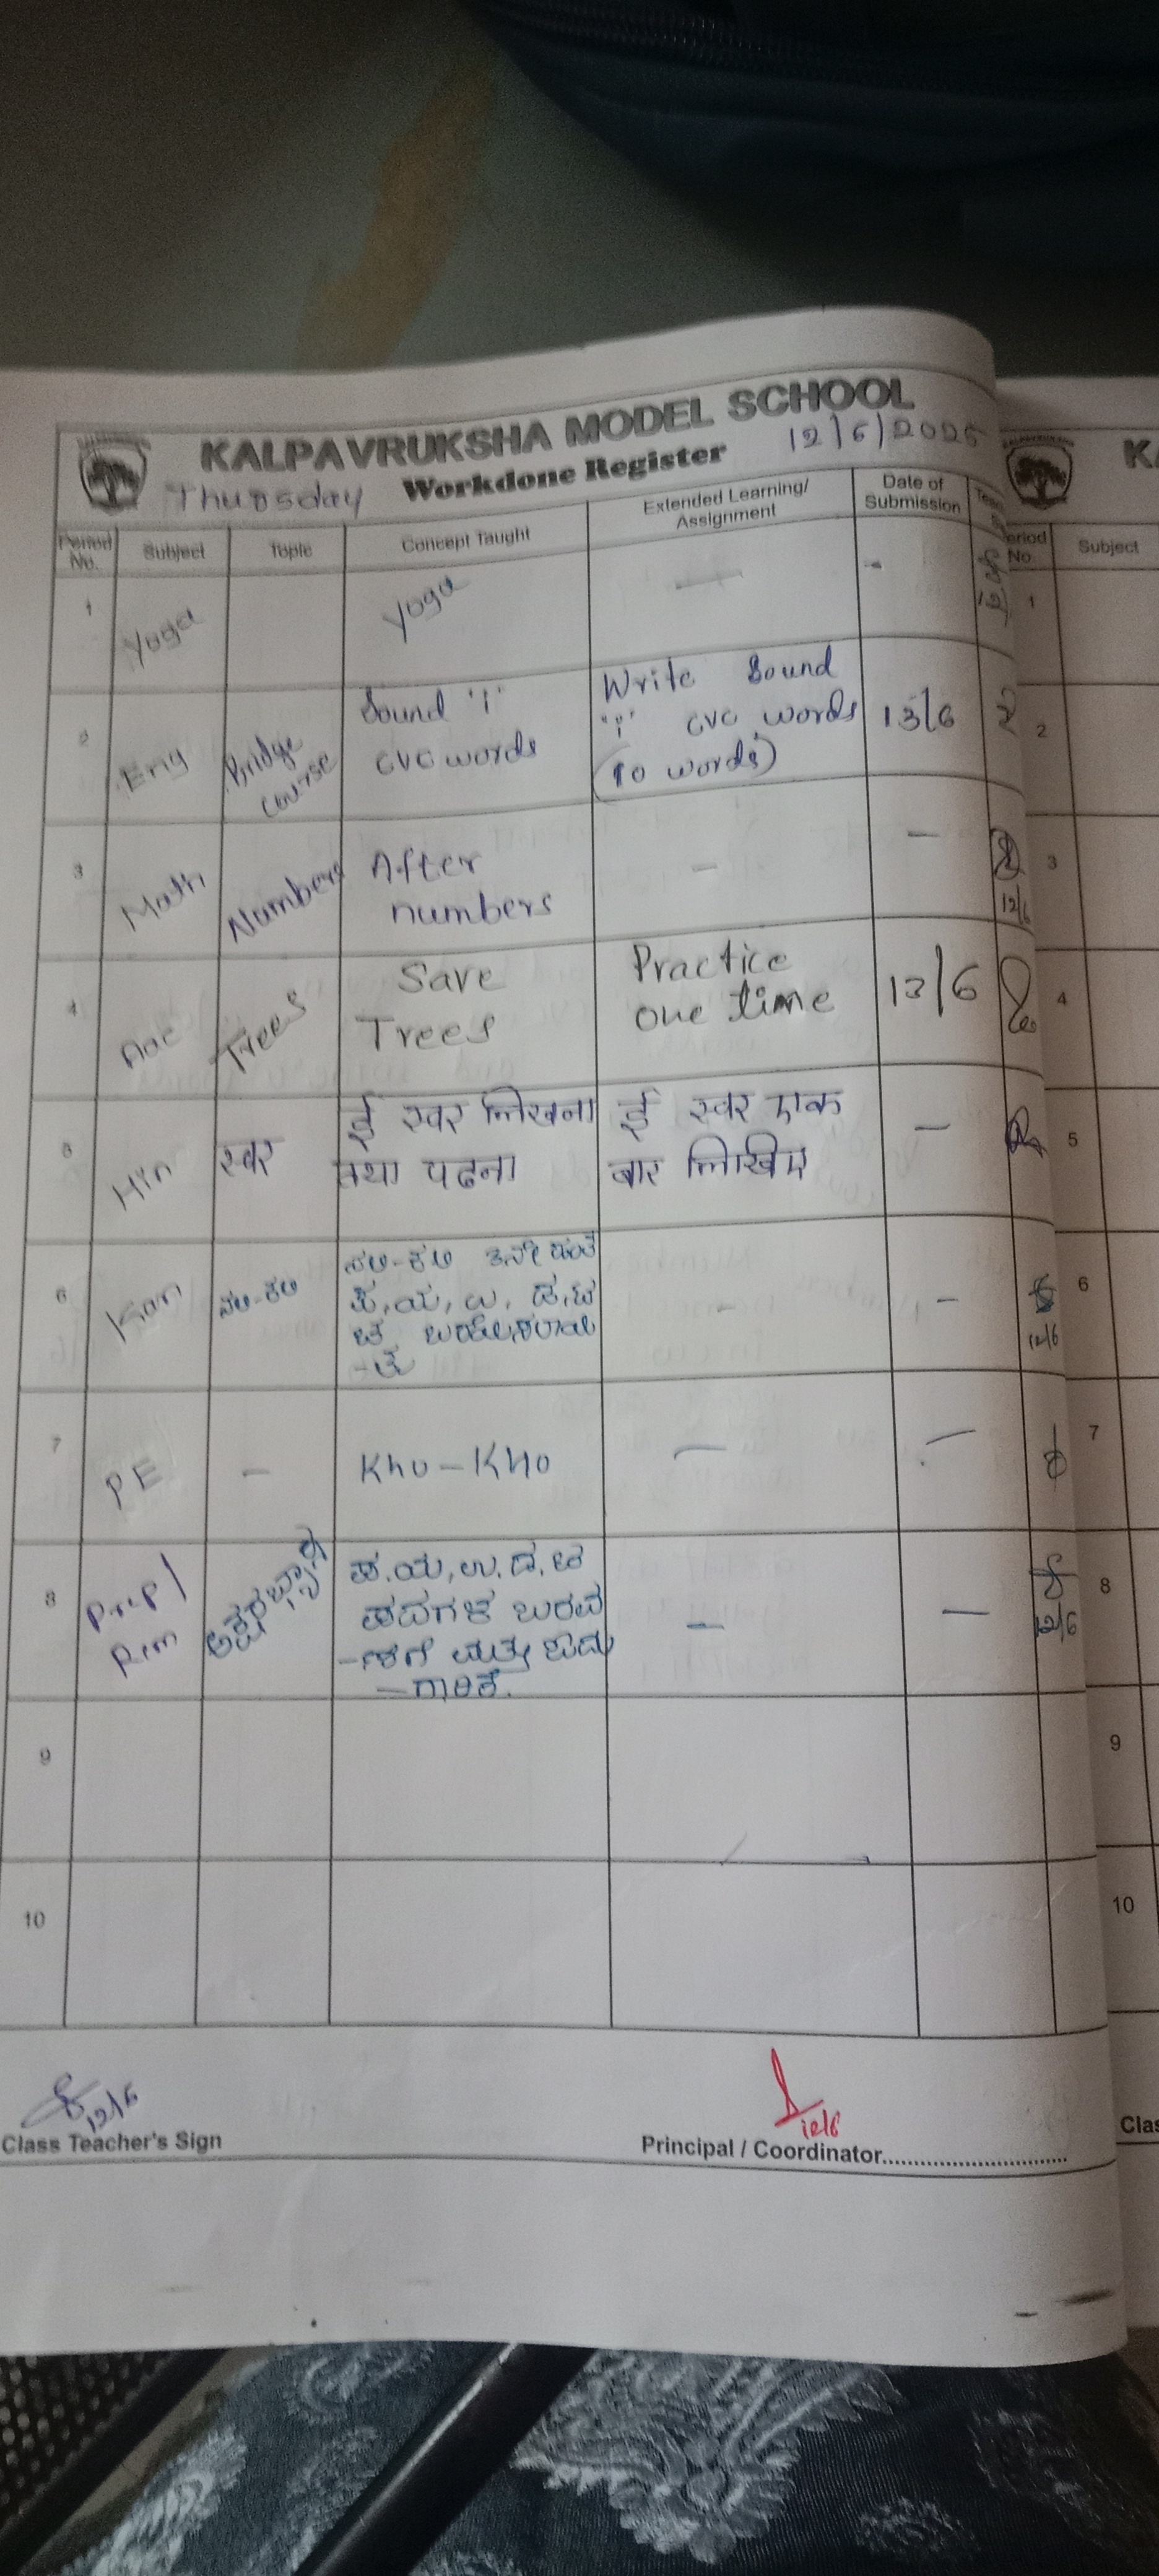 KALPAVRUKSHA MODEL SCHOOL
Thursday Workdone Register 12/6/2025
Period No. Subject Topic Concept Taught Extended Learning/ Assignment Date of Submission
1 Yoga Yoga — -
2 Eng Bridge course Sound 'i' CVC words Write Sound "i" CVC words (10 words) 13/6
3 Math Numbers After numbers - — 12/6
4 Trees Save Trees Practice one time 13/6
5 Hin स्वर ई स्वर लिखना तथा पढना ई स्वर एक बार लिखिए —
6 Kan ನಲಿ-ಕಲಿ ನಲಿ-ಕಲಿ - — 12/6
7 PE - Kho-Kho — —
8 Prep/ Rem ಪ.ಯ,ಉ.ಡ,ಟ ಪದಗಳ ಬರವ -ಣಿಗೆ ಮತ್ತು ಓದು -ಗಾರಿಕೆ. — — 12/6
9
10
12/6
Class Teacher's Sign
12/6
Principal / Coordinator..............................
K
Period No Subject
1
2
3
4
5
6
7
8
9
10
Clas